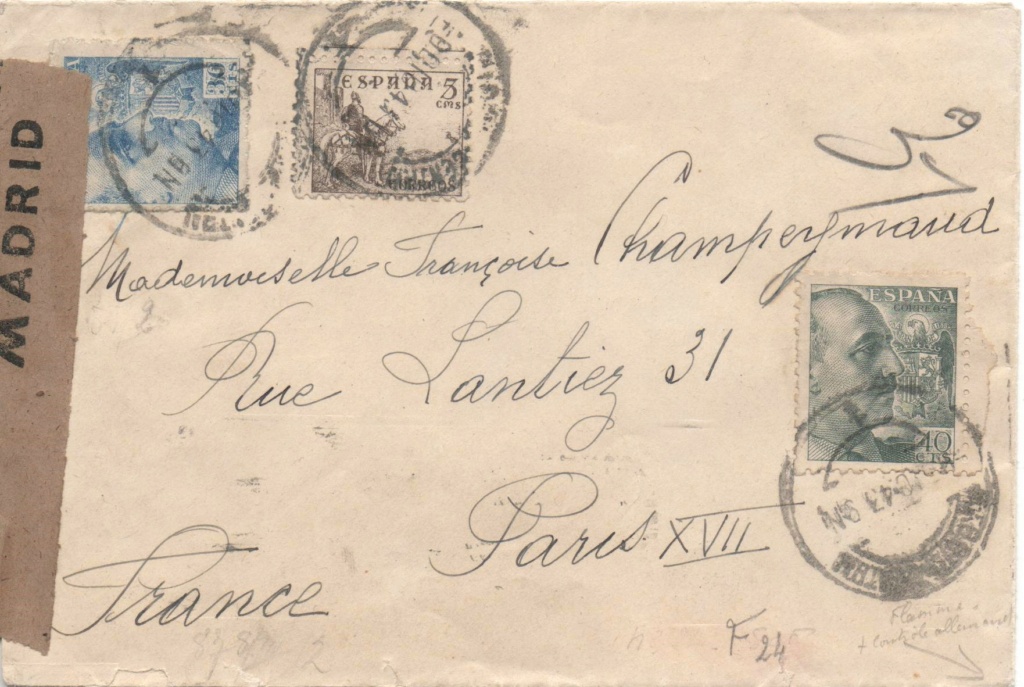 MADRID
30
CTS
ESPAÑA 5
CMS
CORREOS
Mademoiselle Françoise Champeymaud
Rue Lantiez 31
Paris XVII
France
ESPAÑA
CORREOS
40
CTS
43 9N
F 24
+ Contrôle allemand